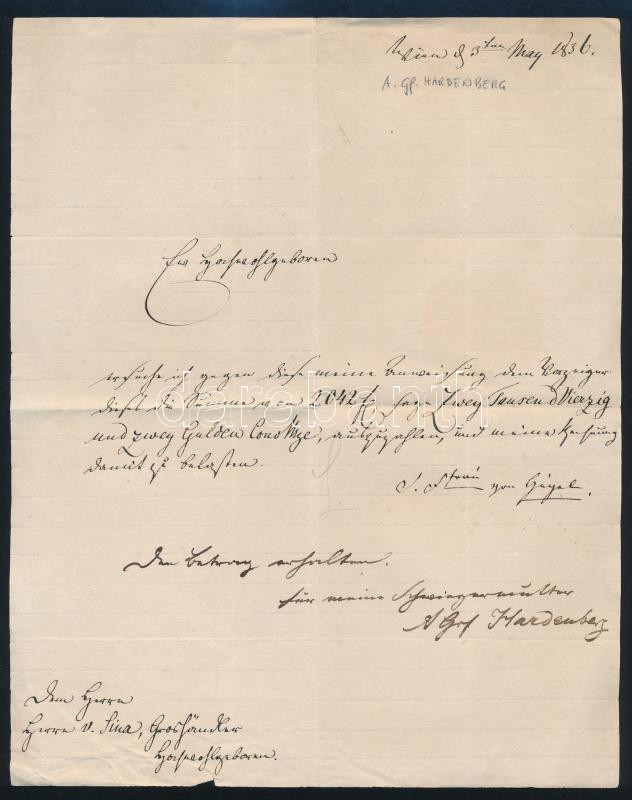 Wien d 3ten May 1836.
A. Gf. HARDENBERG
Ew Hochwohlgeboren
ersuche ich gegen diese meine Anweisung dem Vorzeiger
dieses die Summe von 2042 f, sage Zwey Tausend Vierzig
und zwey Gulden Conv Mze, auszuzahlen, und meine Rechnung
damit zu belasten.
darabanth
J. Freiin von Hügel.
Den Betrag erhalten.
für meine Schwiegermutter
A Grf Hardenberg
Dem Herrn
Herrn v. Sina, Groshändler
Hochwohlgeboren.